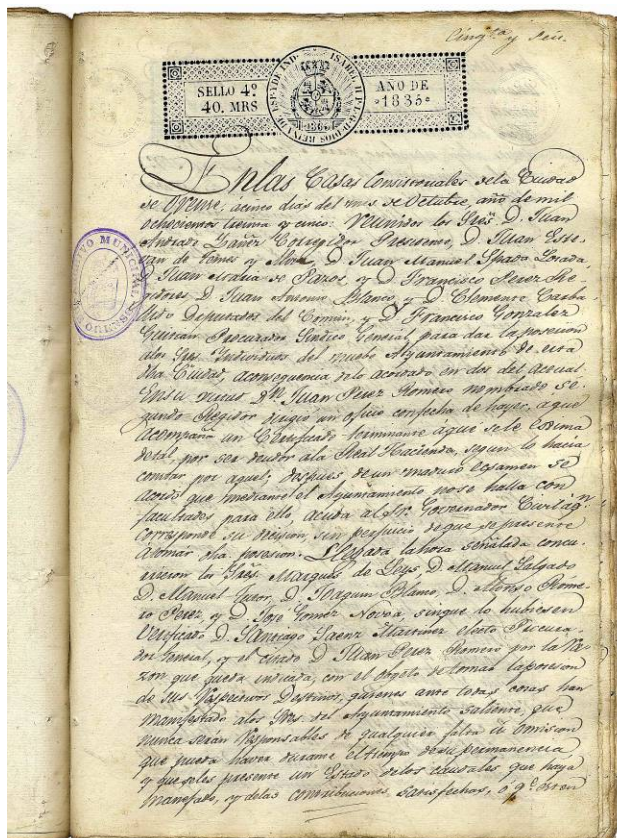 Cinq.ta y seis.
ISABEL II P.L.G. DE DIOS REINA DE ESP. Y DE IND.
SELLO 4º
40. MRS
AÑO DE
1835
ARCHIVO MUNICIPAL
En las Casas Consistoriales de la Ciudad
de Orense, á cinco dias del mes de Octubre, año de mil
ochocientos treinta y cinco: Reunidos los Sres. D. Juan
Andrade Yañez Corregidor Presidente, D. Juan Este-
van de Temes y D. Juan Manuel Spada Losada
D. Juan Maria de Pazos, y D. Francisco Perez Re-
gidores D. Juan Antonio Blanco, y D. Clemente Carba-
llido Deputados del Comun, y D. Francisco Gonzalez
Guitián Procurador Sindico General para dar la posesion
alos Sres. Individuos del nuebo Ayuntamiento de esta
dha Ciudad, aconsequencia delo acordado en dos del actual
En su virtud Dn. Juan Perez Romero nombrado Se-
gundo Regidor dirigio un oficio confecha de hayer, aque
acompaña un Certificado terminante aque sele exima
de tal por ser deudor ala Real Hacienda, segun lo hacia
constar por aquel; despues de un maduro ecsamen se
acordó que mediante el Ayuntamiento nose halla con
facultades para ello acuda al Sr. Governador Civil aqn.
corresponde su decision, sin perjuicio deque sepresente
átomar dha posesion. Llegada lahora señalada concu-
rrieron los Sres. Marques de Leys D. Manuel Salgado
D. Manuel Tutor, D. Joaquin Blanco, D. Alonso Rome-
ro Perez, y D. José Gomez Novoa, sinque lo hubiesen
Verificado D. Santiago Saenz Martinez electo Procura-
dor General, y el citado D. Juan Perez Romero por la Ra-
zon que queda indicada, con el objeto de tomar laposesion
de sus Respectivos Destinos, quienes ante todas cosas han
manifestado alos Sres. del Ayuntamiento saliente, que
nunca serán Responsables de qualquier falta ú omision
que pueda haver durante el tiempo desu permanencia
y queseles presente un Estado delos caudales que haya
manejado, y delas contribuciones satisfechas, ó qe. esten